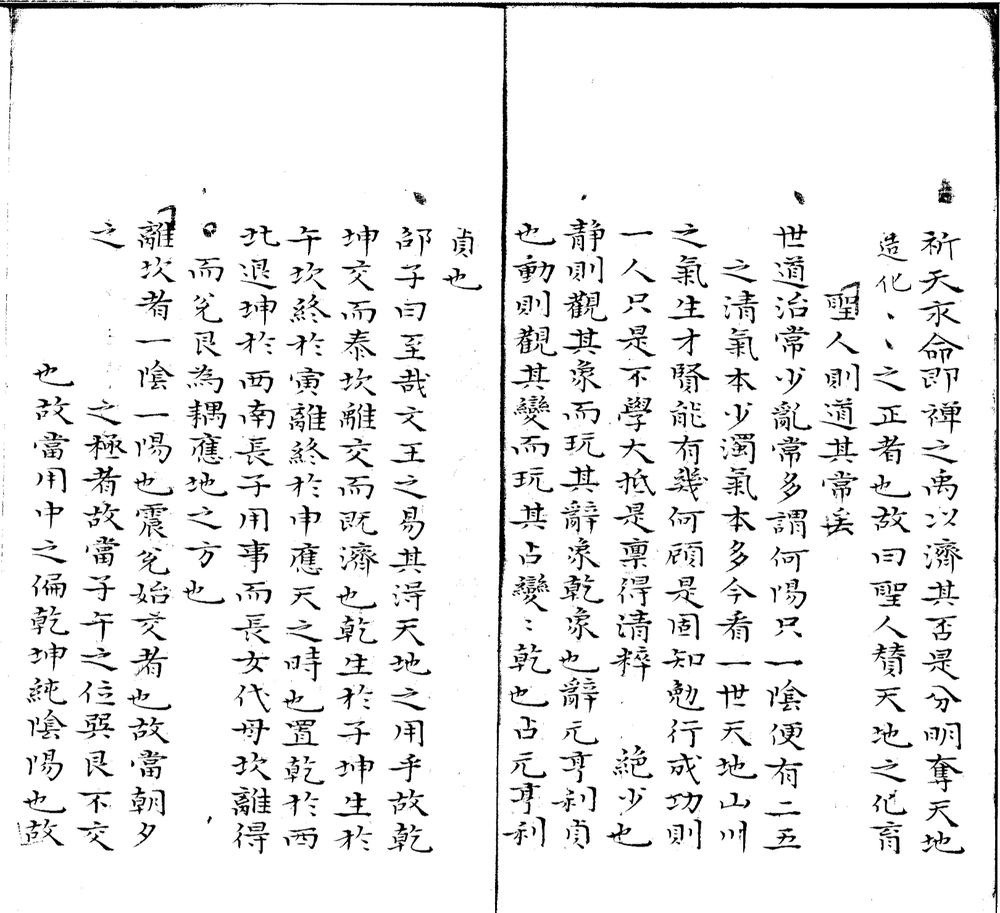 祈天永命即禪之禹以濟其否是分明奪天地
造化、、之正者也故曰聖人賛天地之化育
聖人則道其常矣
世道治常少亂常多謂何陽只一陰便有二五
之清氣本少濁氣本多今看一世天地山川
之氣生才賢能有幾何顧是固知勉行成功則
一人只是不學大抵是禀得清粹 絕少也
静則觀其象而玩其辭象乾象也辭元亨利貞
也動則觀其變而玩其占變〻乾也占元亨利
貞也
邵子曰至哉文王之易其淂天地之用乎故乾
坤交而泰坎離交而既濟也乾生於子坤生於
午坎終於寅離終於申應天之時也置乾於西
北退坤於西南長子用事而長女代母坎離得
而兌艮為耦應地之方也
離坎者一陰一陽也震兌始交者也故當朝夕
之
之極者故當子午之位巽艮不交
也故當用中之偏乾坤純陰陽也故